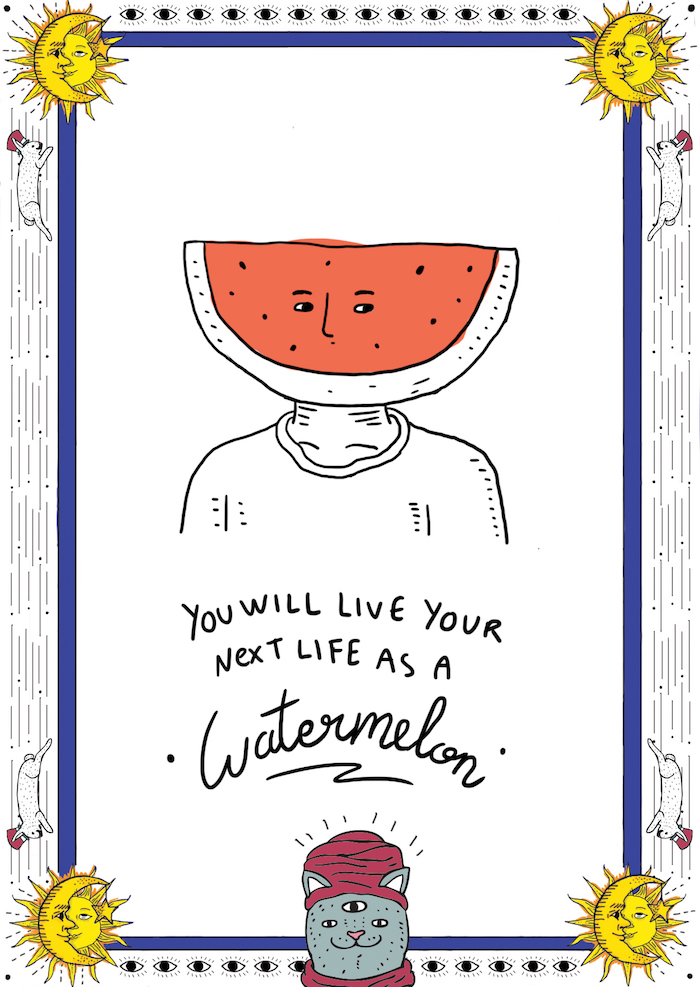 YOU WILL LIVE YOUR
NexT LIFE AS A
Watermelon